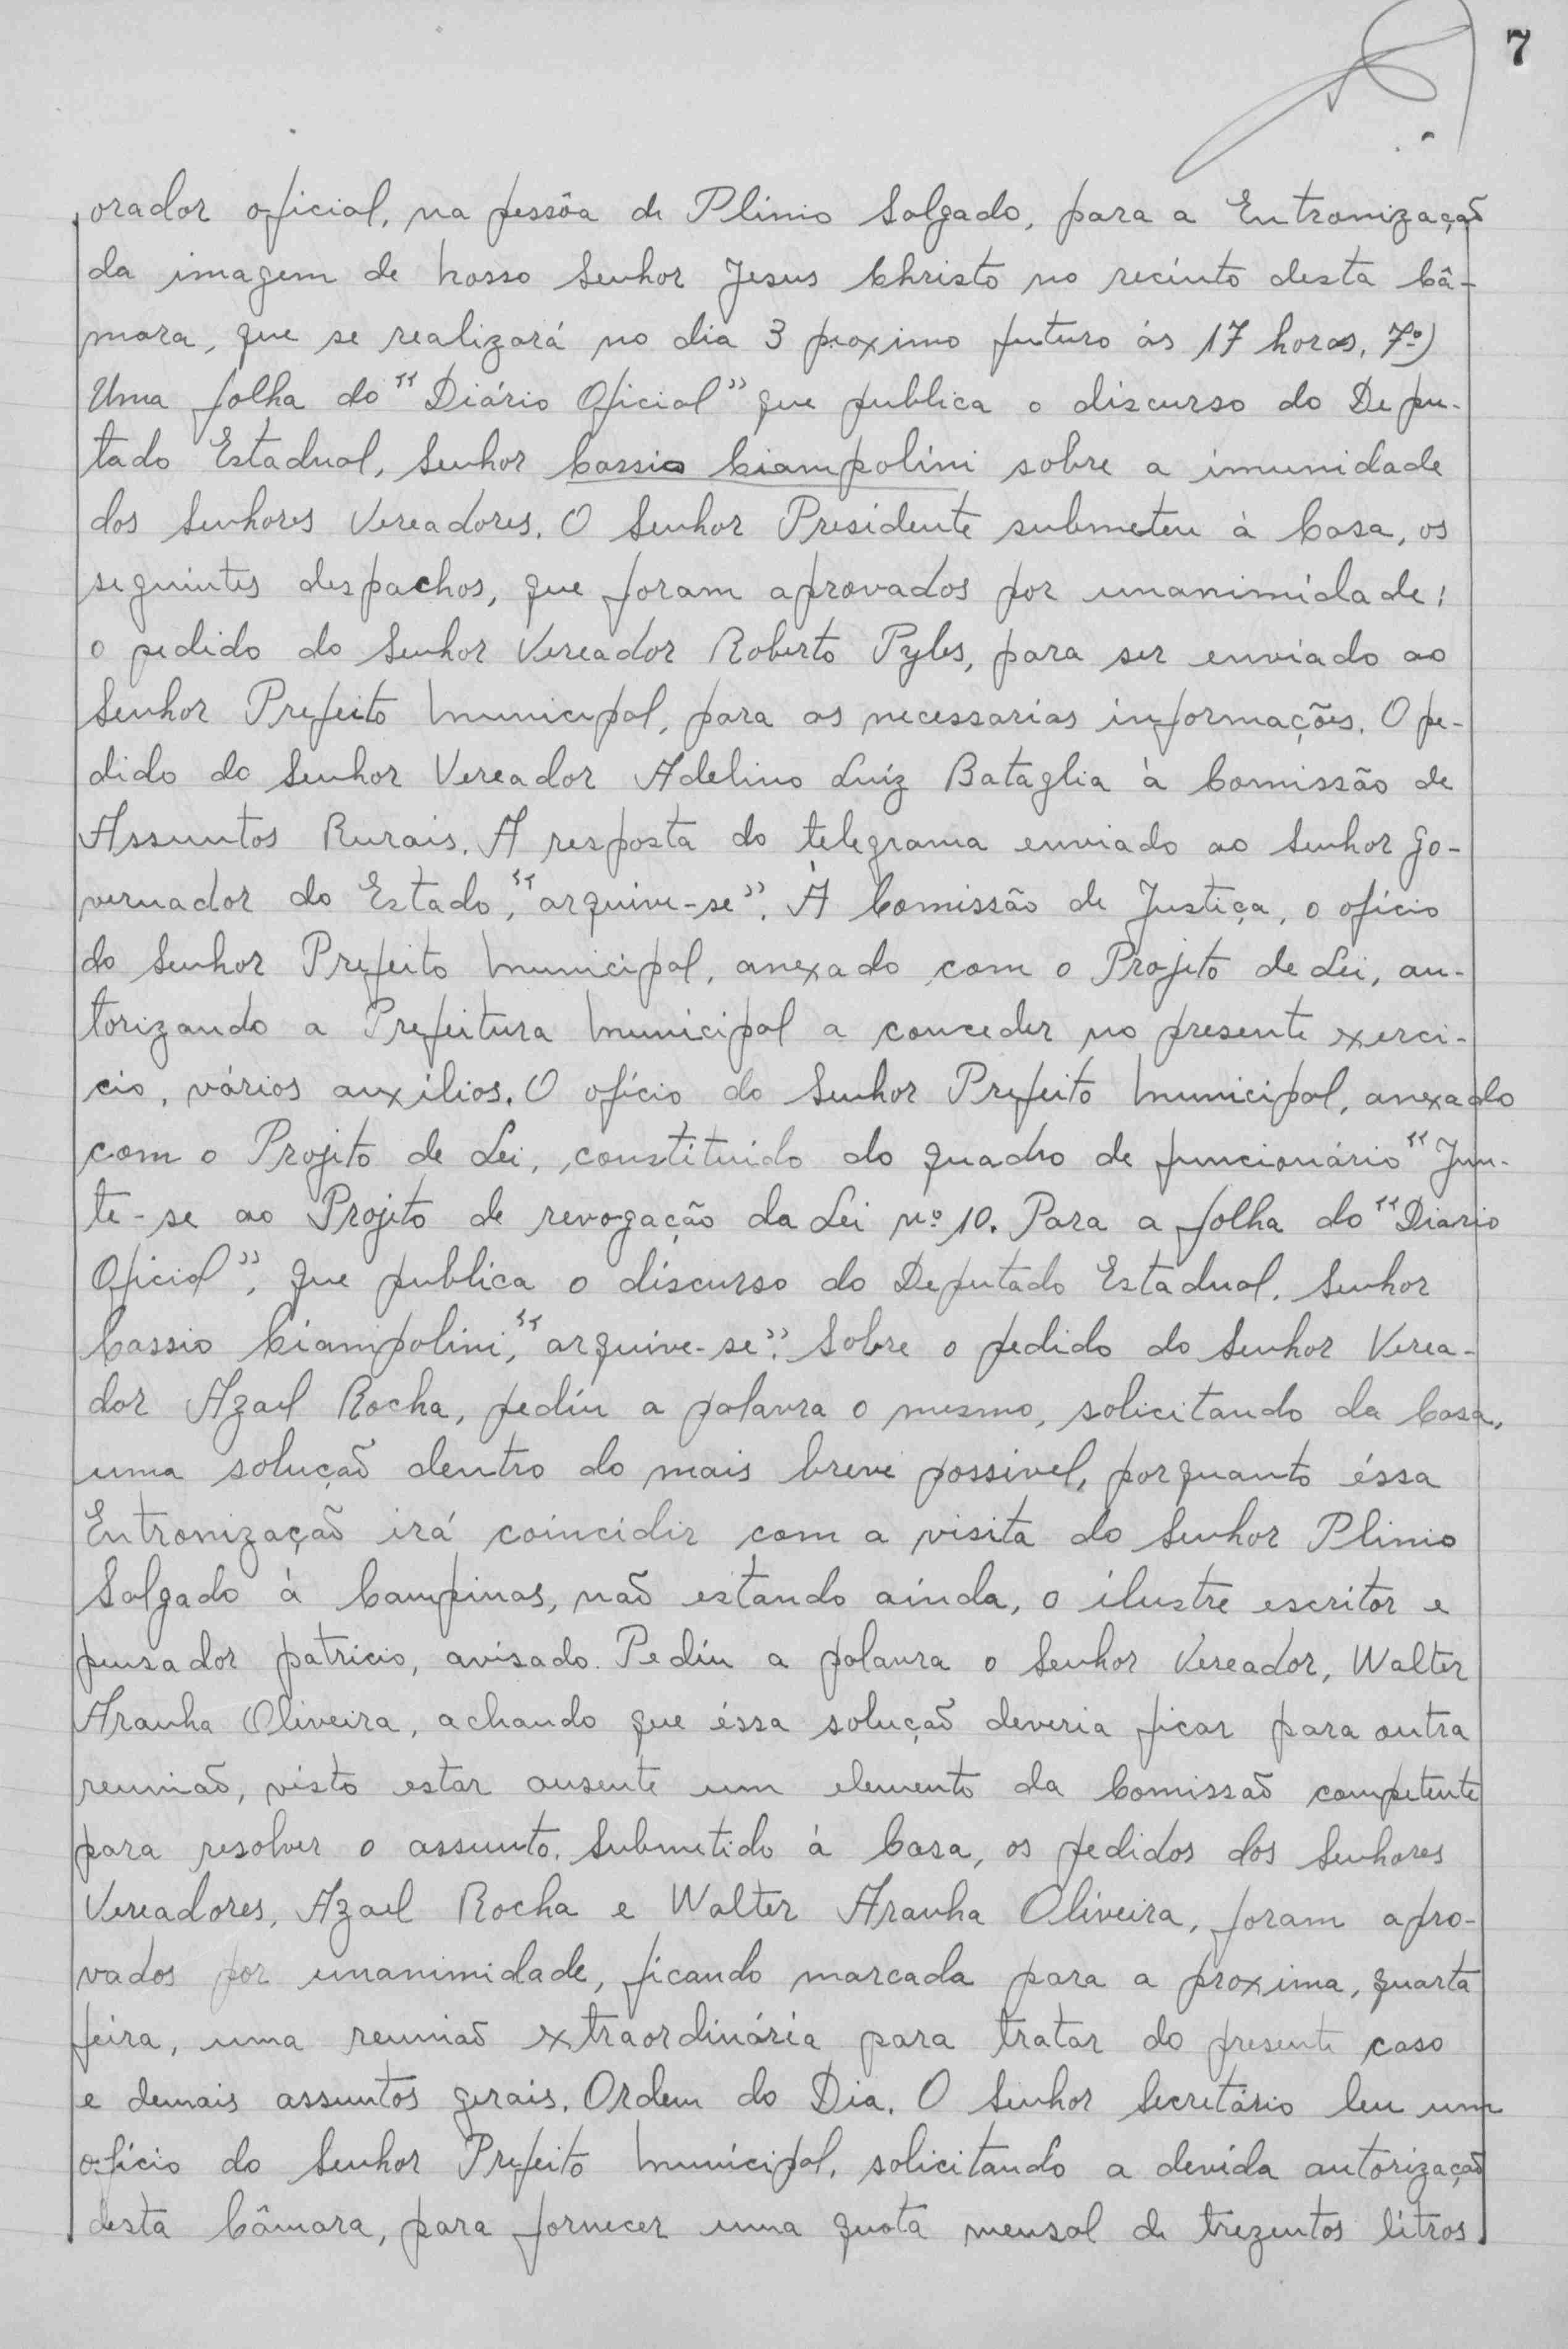 7
orador oficial, na pessôa de Plinio Salgado, para a Entronização
da imagem de Nosso Senhor Jesus Christo no recinto desta Câ-
mara, que se realizará no dia 3 proximo futuro ás 17 horas. 7º)
Uma folha do "Diário Oficial" que publica o discurso do Depu-
tado Estadual, Senhor Cassio Ciampolini sobre a imunidade
dos Senhores Vereadores. O Senhor Presidente submeteu à Casa, os
seguintes despachos, que foram aprovados por unanimidade:
o pedido do Senhor Vereador Roberto Pyles, para ser enviado ao
Senhor Prefeito Municipal, para as necessarias informações. O pe-
dido do Senhor Vereador Adelino Luíz Bataglia à Comissão de
Assuntos Rurais. A resposta do telegrama enviado ao Senhor Go-
vernador do Estado, "arquive-se". À Comissão de Justiça, o ofício
do Senhor Prefeito Municipal, anexado com o Projeto de Lei, au-
torizando a Prefeitura Municipal a conceder no presente exerci-
cio, vários auxílios. O ofício do Senhor Prefeito Municipal, anexado
com o Projeto de Lei, constituido do quadro de funcionário "Jun-
te-se ao Projeto de revogação da Lei nº 10. Para a folha do "Diario
Oficial", que publica o discurso do Deputado Estadual, Senhor
Cassio Ciampolini, "arquive-se". Sobre o pedido do Senhor Verea-
dor Azael Rocha, pediu a palavra o mesmo, solicitando da Casa,
uma solução dentro do mais breve possivel, porquanto éssa
Entronização irá coincidir com a visita do Senhor Plinio
Salgado à Campinas, não estando ainda, o ilustre escritor e
pensador patricio, avisado. Pediu a palavra o Senhor Vereador, Walter
Aranha Oliveira, achando que éssa solução deveria ficar para outra
reunião, visto estar ausente um elemento da Comissão competente
para resolver o assunto. Submetido à Casa, os pedidos dos Senhores
Vereadores, Azael Rocha e Walter Aranha Oliveira, foram apro-
vados por unanimidade, ficando marcada para a proxima, quarta
feira, uma reunião extraordinária para tratar do presente caso
e demais assuntos gerais. Ordem do Dia. O Senhor Secretário leu um
ofício do Senhor Prefeito Municipal, solicitando a devida autorização
desta Câmara, para fornecer uma quota mensal de trezentos litros